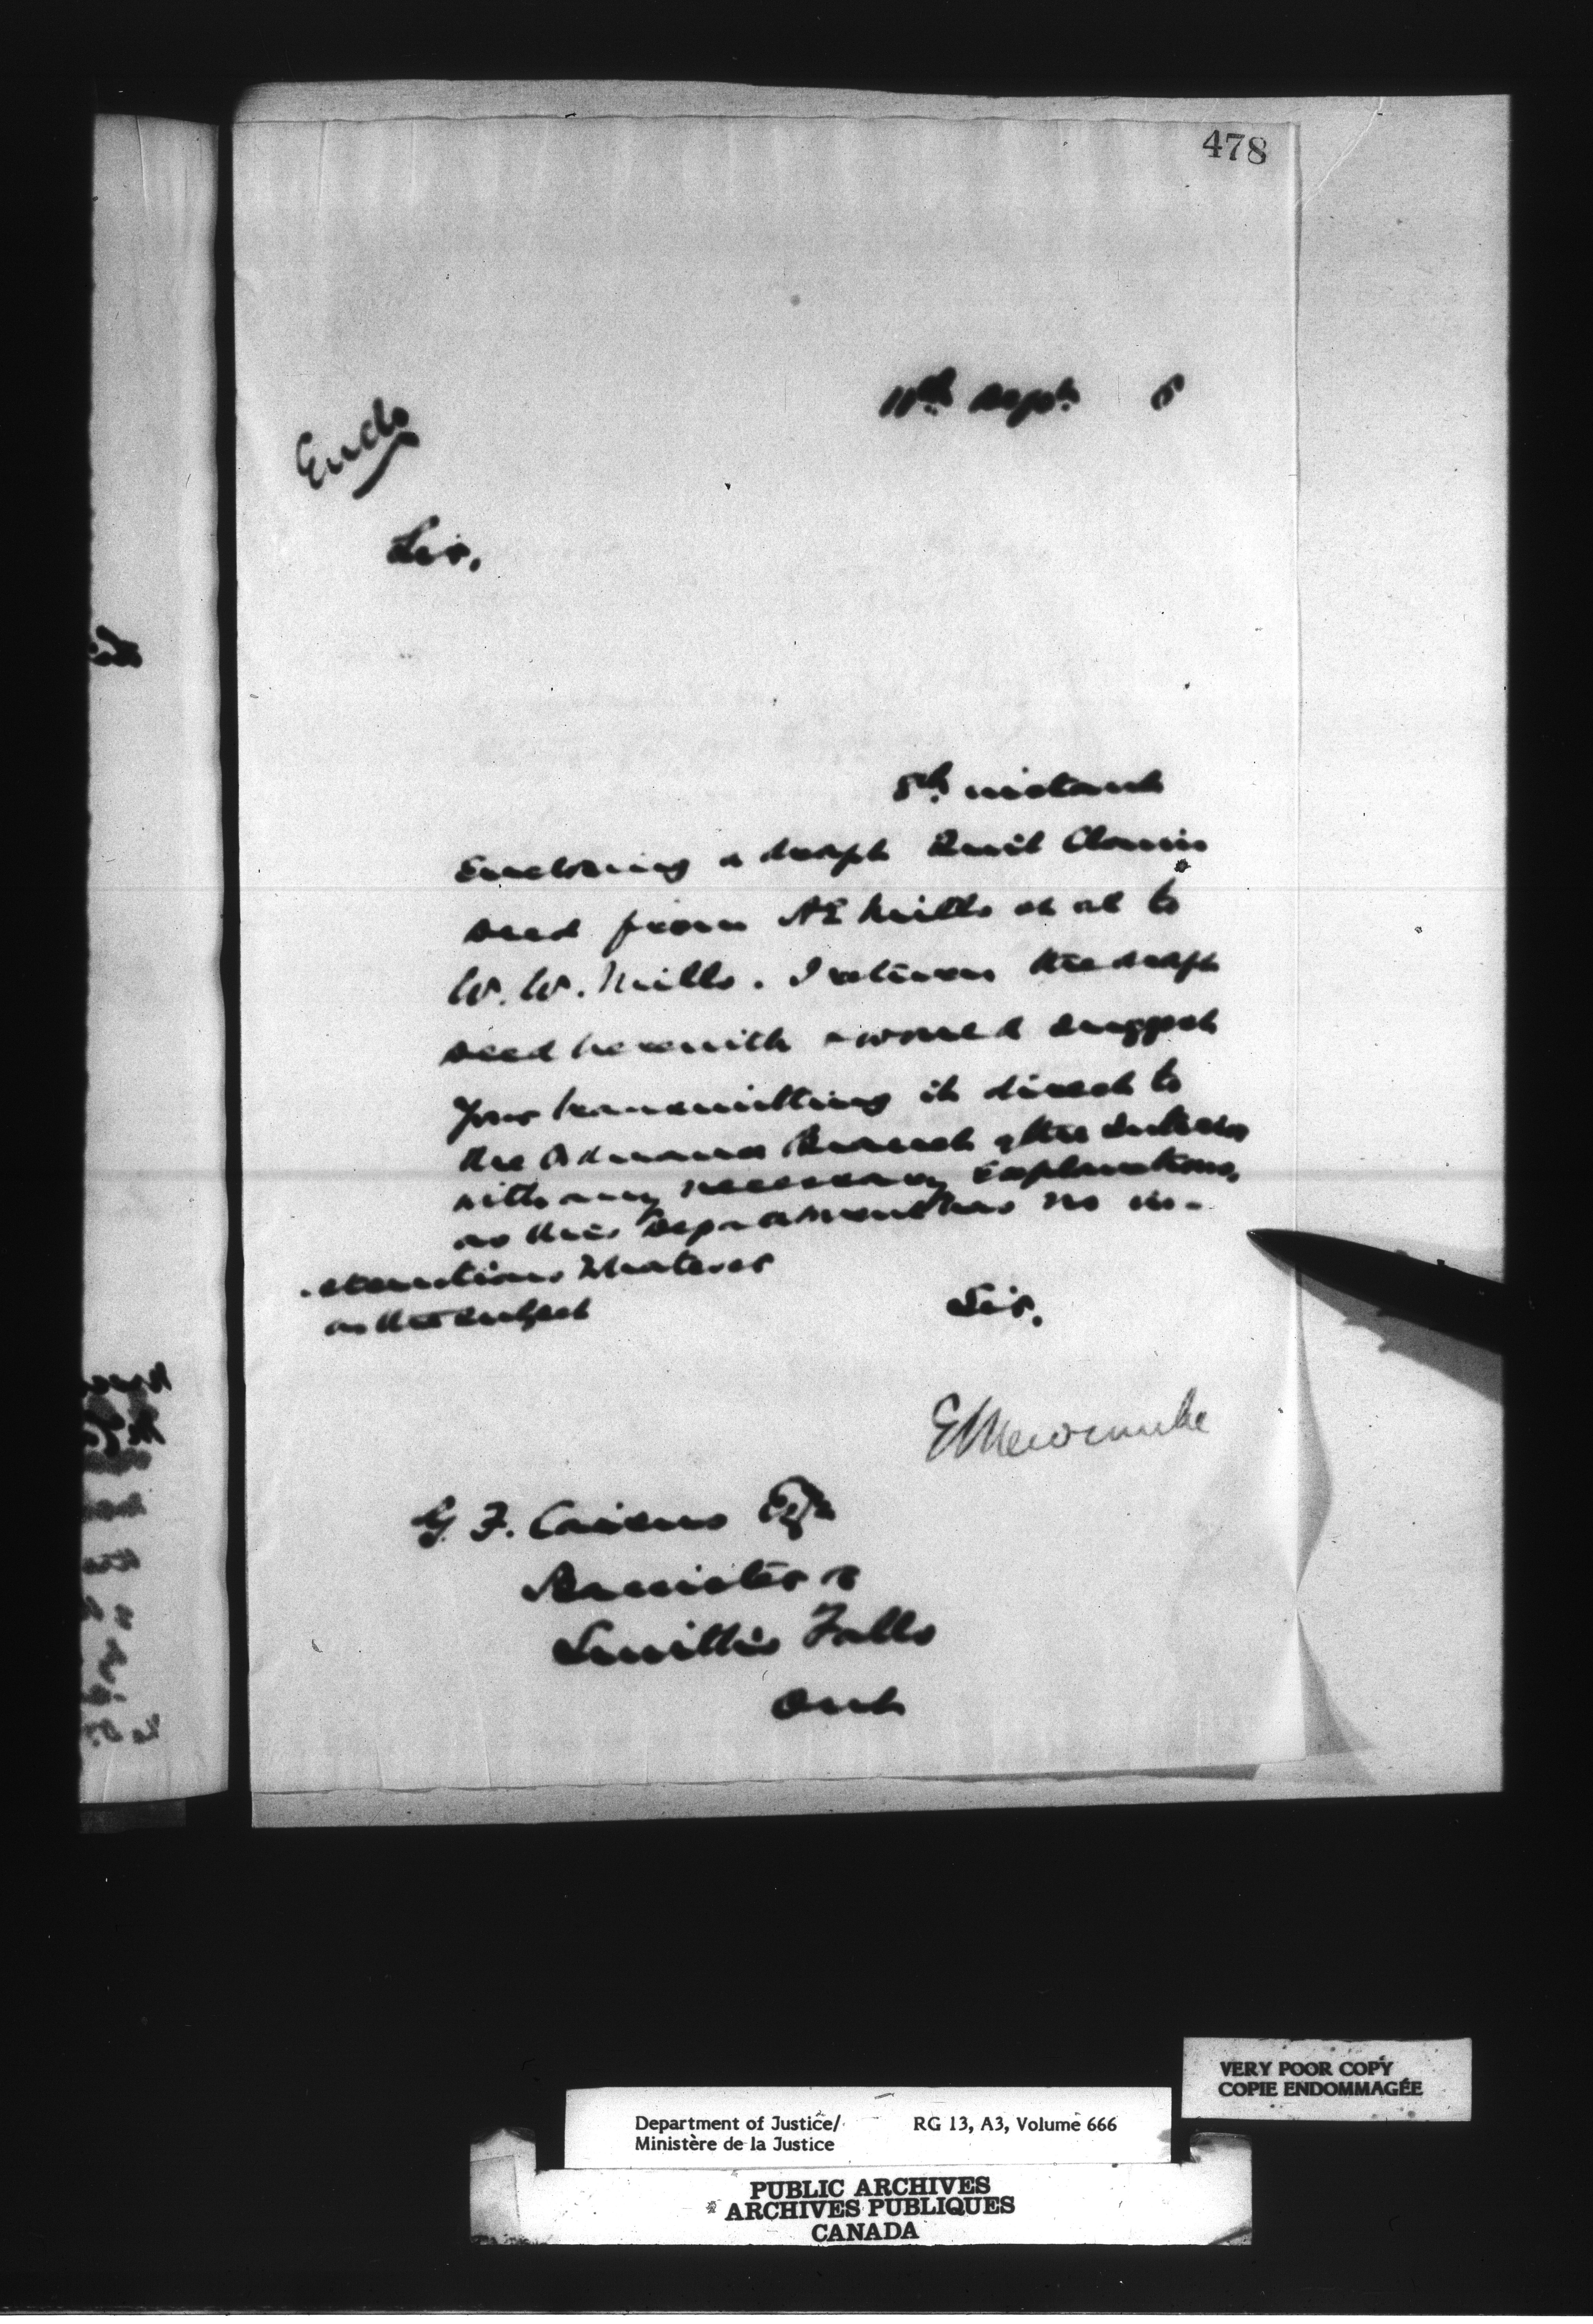 478
11th Sept. 8
Encls
Sir,
8th instant
Enclosing a draft Quit Claim
Deed from A E Mills et al to
W. W. Mills. I return the draft
Deed herewith & would suggest
Your transmitting it direct to
the Ordnance Branch of the Interior
with any necessary explanations,
as this Department has no in-
-structions whatever
on the subject
Sir,
E L Newcombe
G. F. Cairns Esq
Barrister &
Smiths Falls
Ont
VERY POOR COPY
COPIE ENDOMMAGÉE
Department of Justice/ RG 13, A3, Volume 666
Ministère de la Justice
PUBLIC ARCHIVES
ARCHIVES PUBLIQUES
CANADA